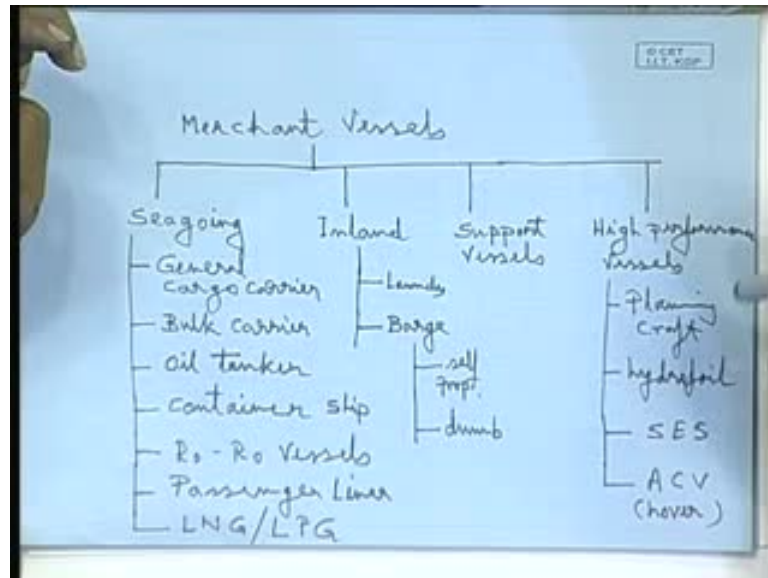 © CET
I.I.T. KGP
Merchant Vessels
Seagoing
General
Cargo Carrier
Bulk Carrier
Oil tanker
Container Ship
Ro-Ro Vessels
Passenger Liner
LNG/LPG
Inland
Barge
self
prop.
dumb
Support
Vessels
High
Vessels
Planing
Craft
hydrofoil
SES
ACV
(hover)